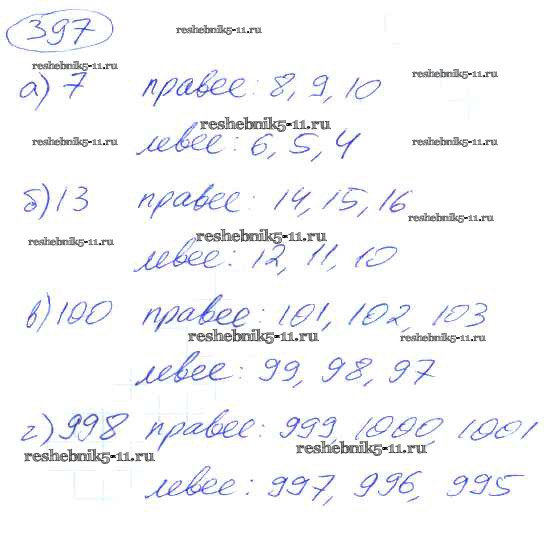 397
reshebnik5-11.ru
reshebnik5-11.ru
reshebnik5-11.ru
а) 7 правее: 8, 9, 10
reshebnik5-11.ru
reshebnik5-11.ru
reshebnik5-11.ru
левее: 6, 5, 4
б) 13 правее: 14, 15, 16
reshebnik5-11.ru
reshebnik5-11.ru
reshebnik5-11.ru
левее: 12, 11, 10
в) 100 правее: 101, 102, 103
reshebnik5-11.ru
reshebnik5-11.ru
левее: 99, 98, 97
г) 998 правее: 999, 1000, 1001
reshebnik5-11.ru
reshebnik5-11.ru
левее: 997, 996, 995